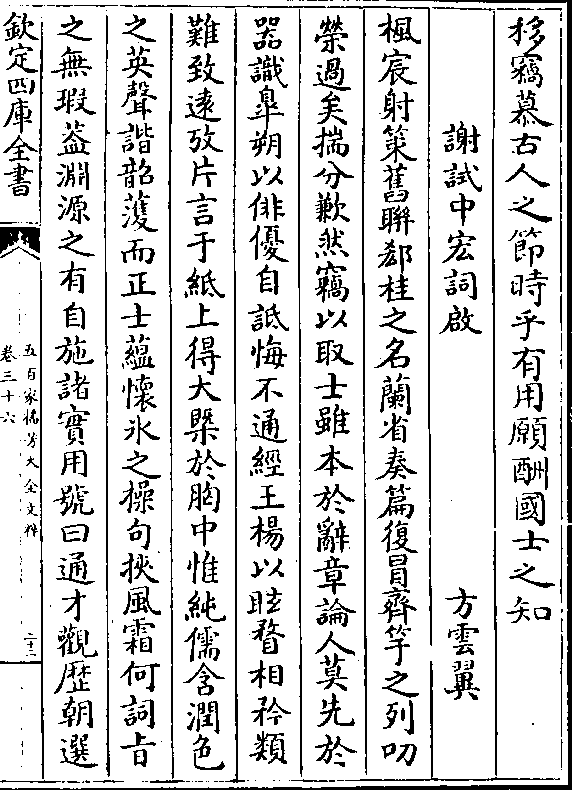 移竊慕古人之節時乎有用願酬國士之知
謝試中宏詞啟
方雲翼
楓宸射策舊聯郄桂之名蘭省奏篇復冒齊竽之列叨
榮過矣揣分歉然竊以取士雖本於辭章論人莫先於
器識臯朔以俳優自詆悔不通經王楊以眩瞀相矜類
難致逺攷片言于紙上得大槩於胸中惟純儒含潤色
之英聲諧韶頀而正士蘊懷氷之操句挾風霜何詞㫖
之無瑕葢淵源之有自施諸實用號曰通才觀歴朝選
欽定四庫全書
五百家播芳大全文粹
卷三十六
二十二